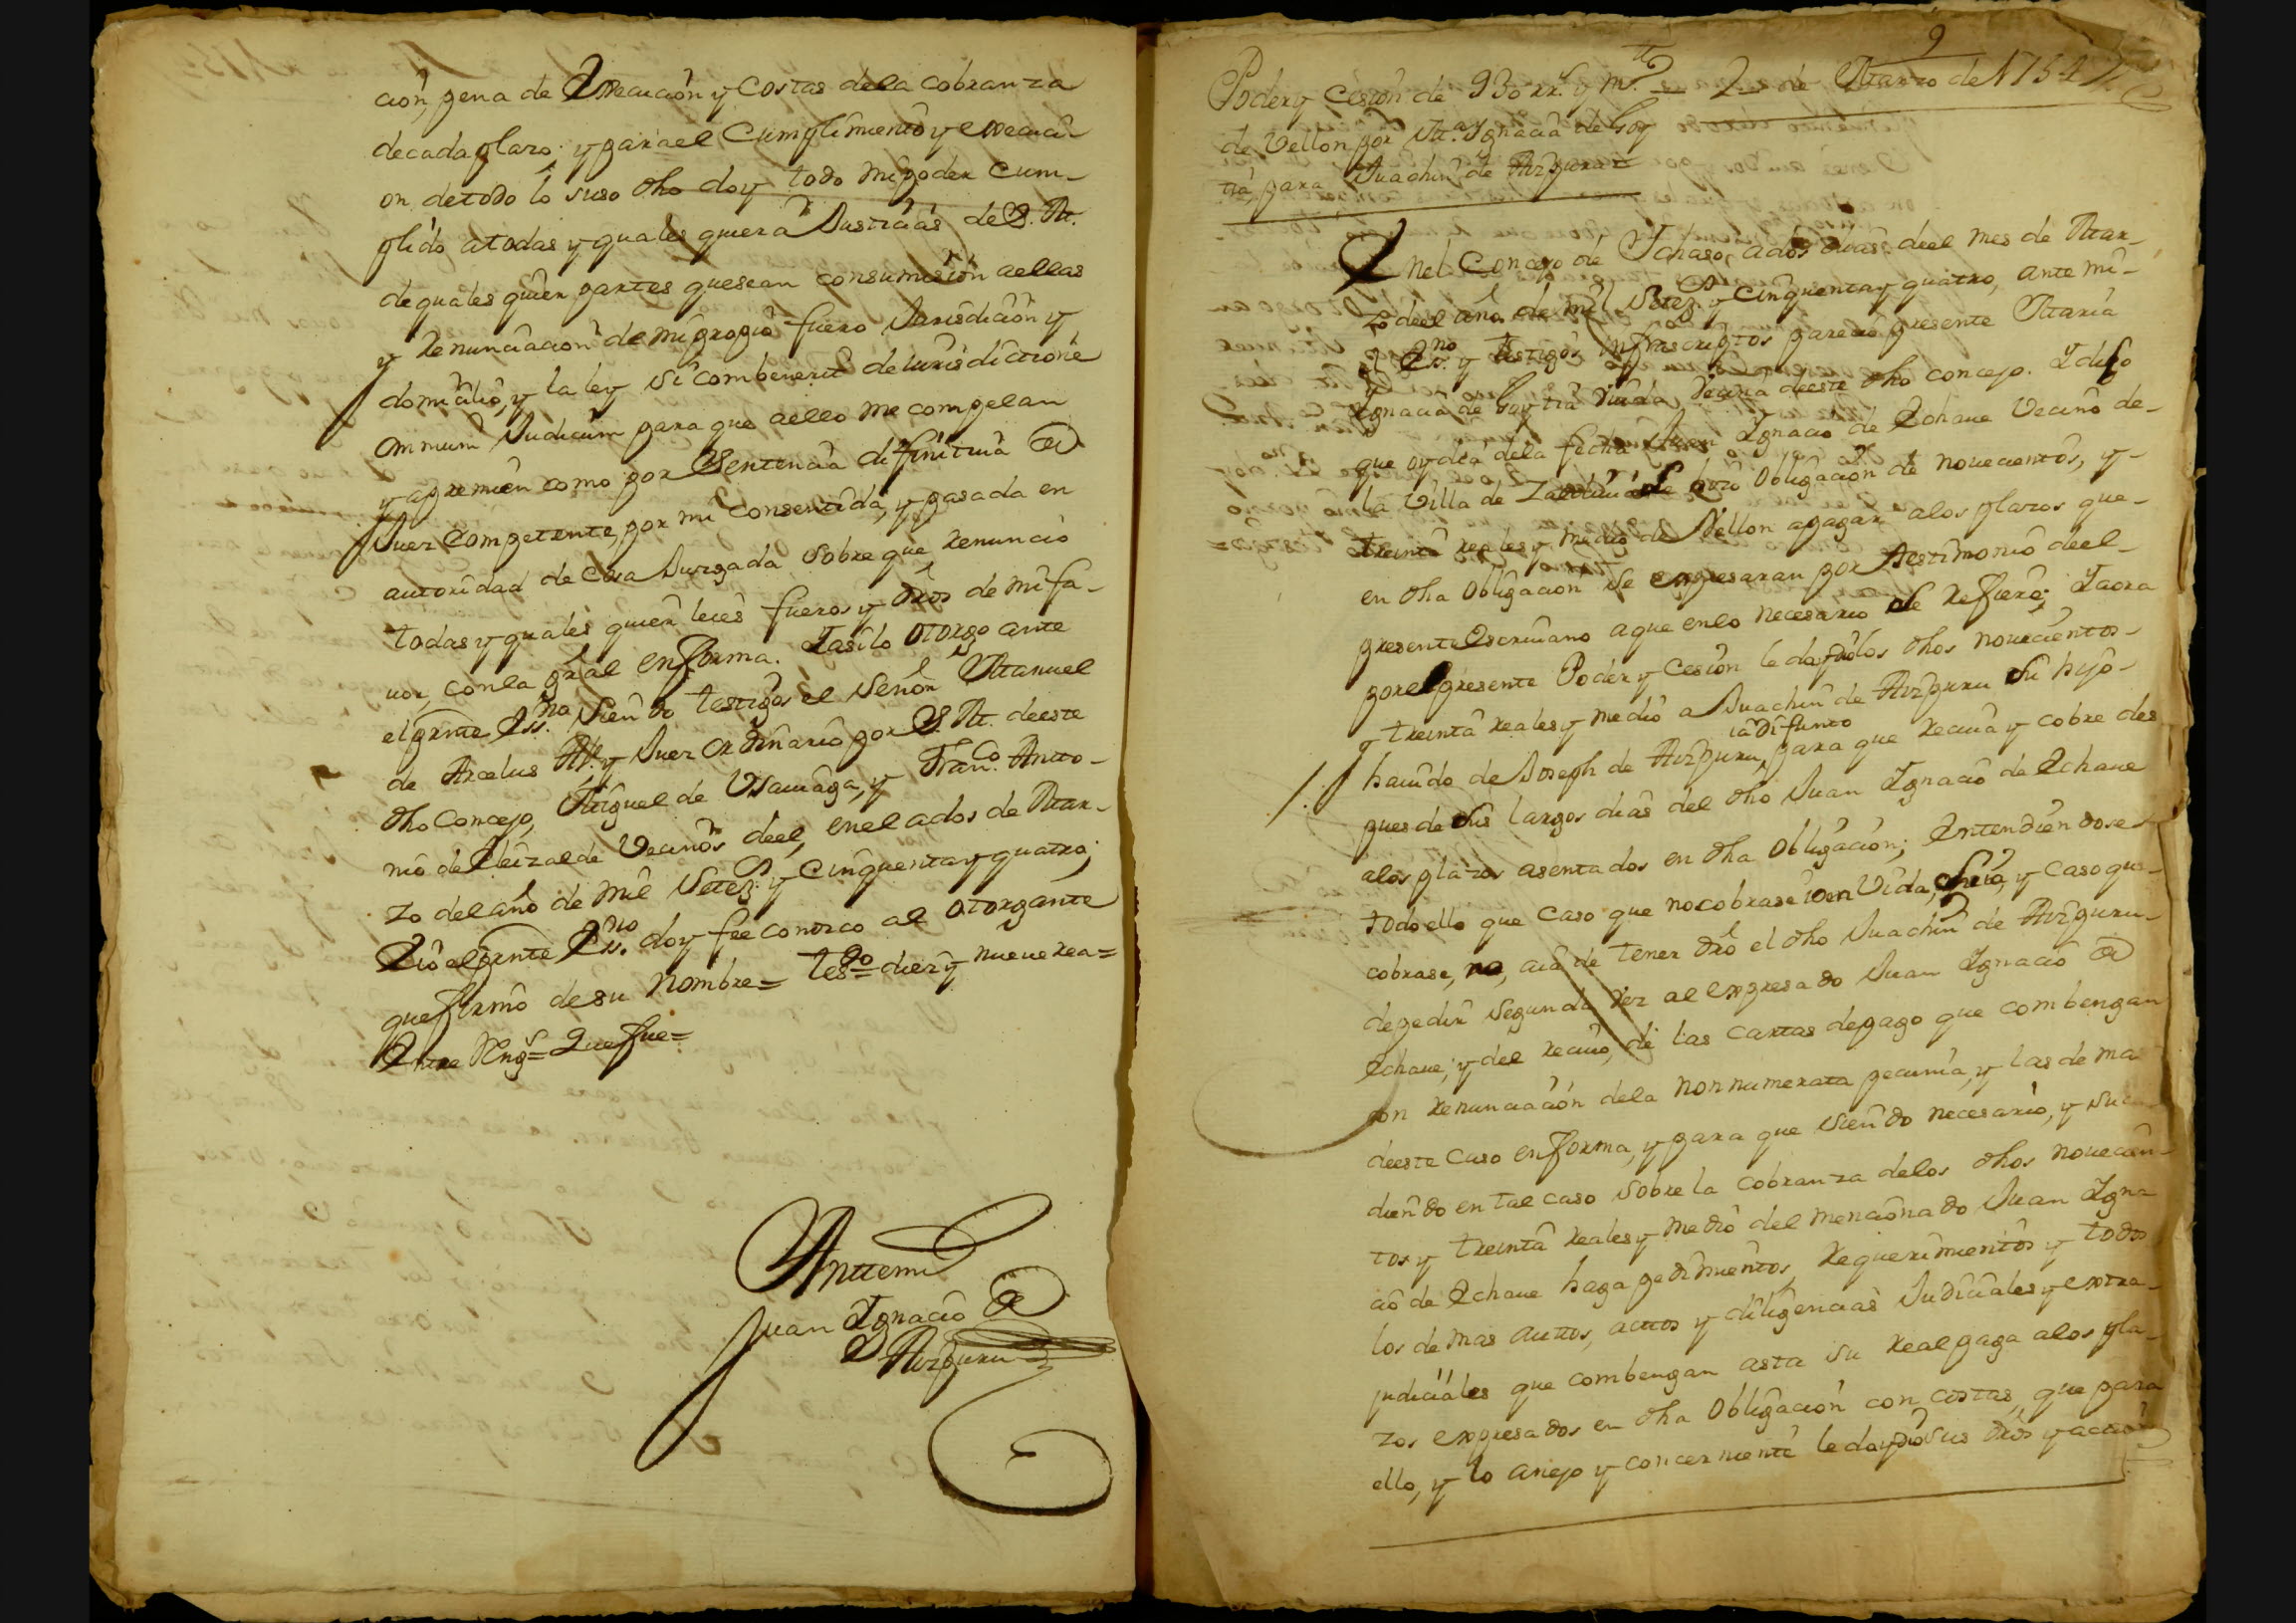 cion, pena de Execucion y Costas dela cobranza
decada plazo. y para el Cumplimiento y execuci-
on detodo lo suso dho doy todo mi poder Cum-
plido atodas y quales quiera Justicias de S. M.
de quales quier partes que sean consumision aellas
y Renunciacion de mi propio fuero Jurisdicion y
domicilio, y la ley si combenerit de iurisdictione
ommium Judicum para que aello me compelan
y apremien como por Sentencia difinitiua de
Juez Competente, por mi Consentida, y pasada en
autoridad de Cosa Juzgada sobre que Renuncio
todas y quales quier leies fueros y dros de mi fa-
uor, con la gral en forma. Iasi lo otorgo ante
el prnte Ess.no siendo testigos el Señor Manuel
de Arcelus All.e y Juez ordinario por S. M. deeste
dho Concejo, Miguel de Vsauiaga, y Fran.co Anto-
nio de Eleizalde Vecinos deel, en el a dos de Mar-
zo del año de mil Setez.s y Cinquenta y quatro;
E io el prnte Ess.no doy fee conozco al otorgante
que firmo de su nombre= tes.do= diez y nueue rea=
Entre Reng.s= Que fue=
Anttemi
Juan Ignacio de
Aizpuru
9
Poder y Cesion de 930 rr.s y m.o 2 de Marzo de 1754
de Vellon por M.a Ignacia de Goy
tia, para Juachin de Aizpuru=
En el Concejo de Ichaso, a dos dias deel mes de Mar-
zo deel año de mil Setez.s y Cinquenta y quatro, ante mi
el Ess.no y testigos infrascriptos parecio presente Maria
Ignacia de Goytia Viuda Vecina deeste dho concejo. I dijo
que oy dia dela fecha Juan Ignacio de Echaue Vecino de
la Villa de Zaldiuia hizo Obligacion de nouecientos, y
treinta reales y medio de Vellon apagar alos plazos que
en dha Obligacion se expresaran por testimonio deel
presente Escriuano aque enlo necesario se Refiere; I aora
por el presente Poder y Cesion le da y dio los dhos nouecientos
y treinta reales y medio a Juachin de Aizpuru su hijo
ia difunto
hauido de Joseph de Aizpuru, para que reciua y cobre des
pues de sus largos dias del dho Juan Ignacio de Echaue
alos plazos asentados en dha Obligacion; Entendiendose
todo ello que Caso que no cobrase io en Vida, y Caso que
cobrase, no, aia de tener dro el dho Juachin de Aizpuru
depedir segunda Vez al expresado Juan Ignacio de
Echaue; y del reciuo, de las cartas de pago que combengan
con renunciacion dela non numerata pecunia, y las de ma
deeste Caso en forma, y para que siendo necesario, y suce
diendo en tal caso sobre la cobranza delos dhos nouecien
tos y treinta reales y medio del mencionado Juan Igna
cio de Echaue haga pedimientos, Requerimientos y todos
los de mas auttos, acttos y diligencias Judiciales y extra-
judiciales que combengan asta su real paga alos pla-
zos expresados en dha Obligacion con costas, que para
ello, y lo anejo y concerniente le da y dio sus dros y accion